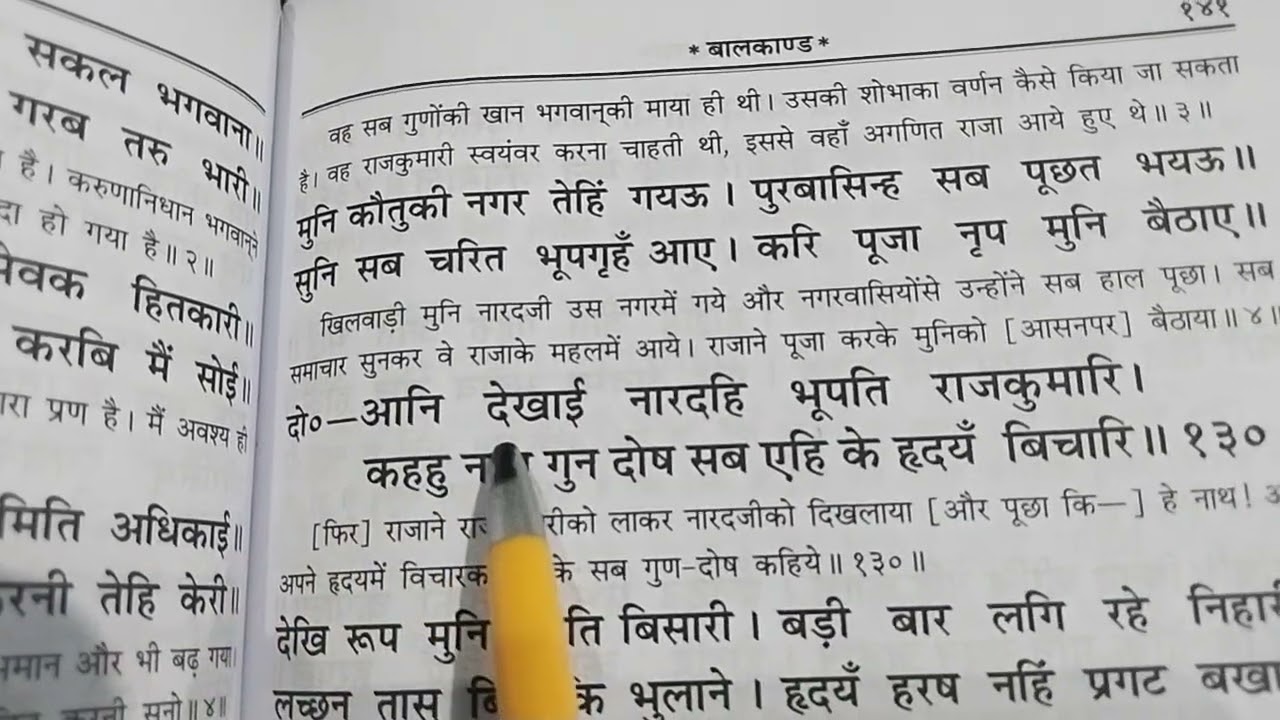 सकल भगवाना॥
गरब तरु भारी॥
है। करुणानिधान भगवान्ने
हो गया है॥ २॥
हितकारी॥
करबि मैं सोई॥
प्रण है। मैं अवश्य ही
अधिकाई॥
तेहि केरी॥
और भी बढ़ गया।
सुनो॥ ४॥
१४१
* बालकाण्ड *
वह सब गुणोंकी खान भगवान्‌की माया ही थी। उसकी शोभाका वर्णन कैसे किया जा सकता
है। वह राजकुमारी स्वयंवर करना चाहती थी, इससे वहाँ अगणित राजा आये हुए थे॥ ३॥
मुनि कौतुकी नगर तेहिं गयऊ। पुरबासिन्ह सब पूछत भयऊ॥
सुनि सब चरित भूपगृहँ आए। करि पूजा नृप मुनि बैठाए॥
खिलवाड़ी मुनि नारदजी उस नगरमें गये और नगरवासियोंसे उन्होंने सब हाल पूछा। सब
समाचार सुनकर वे राजाके महलमें आये। राजाने पूजा करके मुनिको [आसनपर] बैठाया॥ ४॥
दो०—आनि देखाई नारदहि भूपति राजकुमारि।
कहहु गुन दोष सब एहि के हृदयँ बिचारि॥ १३०
[फिर] राजाने लाकर नारदजीको दिखलाया [और पूछा कि—] हे नाथ!
अपने हृदयमें सब गुण-दोष कहिये॥ १३०॥
देखि रूप मुनि बिसारी। बड़ी बार लगि रहे
लच्छन तासु भुलाने। हृदयँ हरष नहिं प्रगट